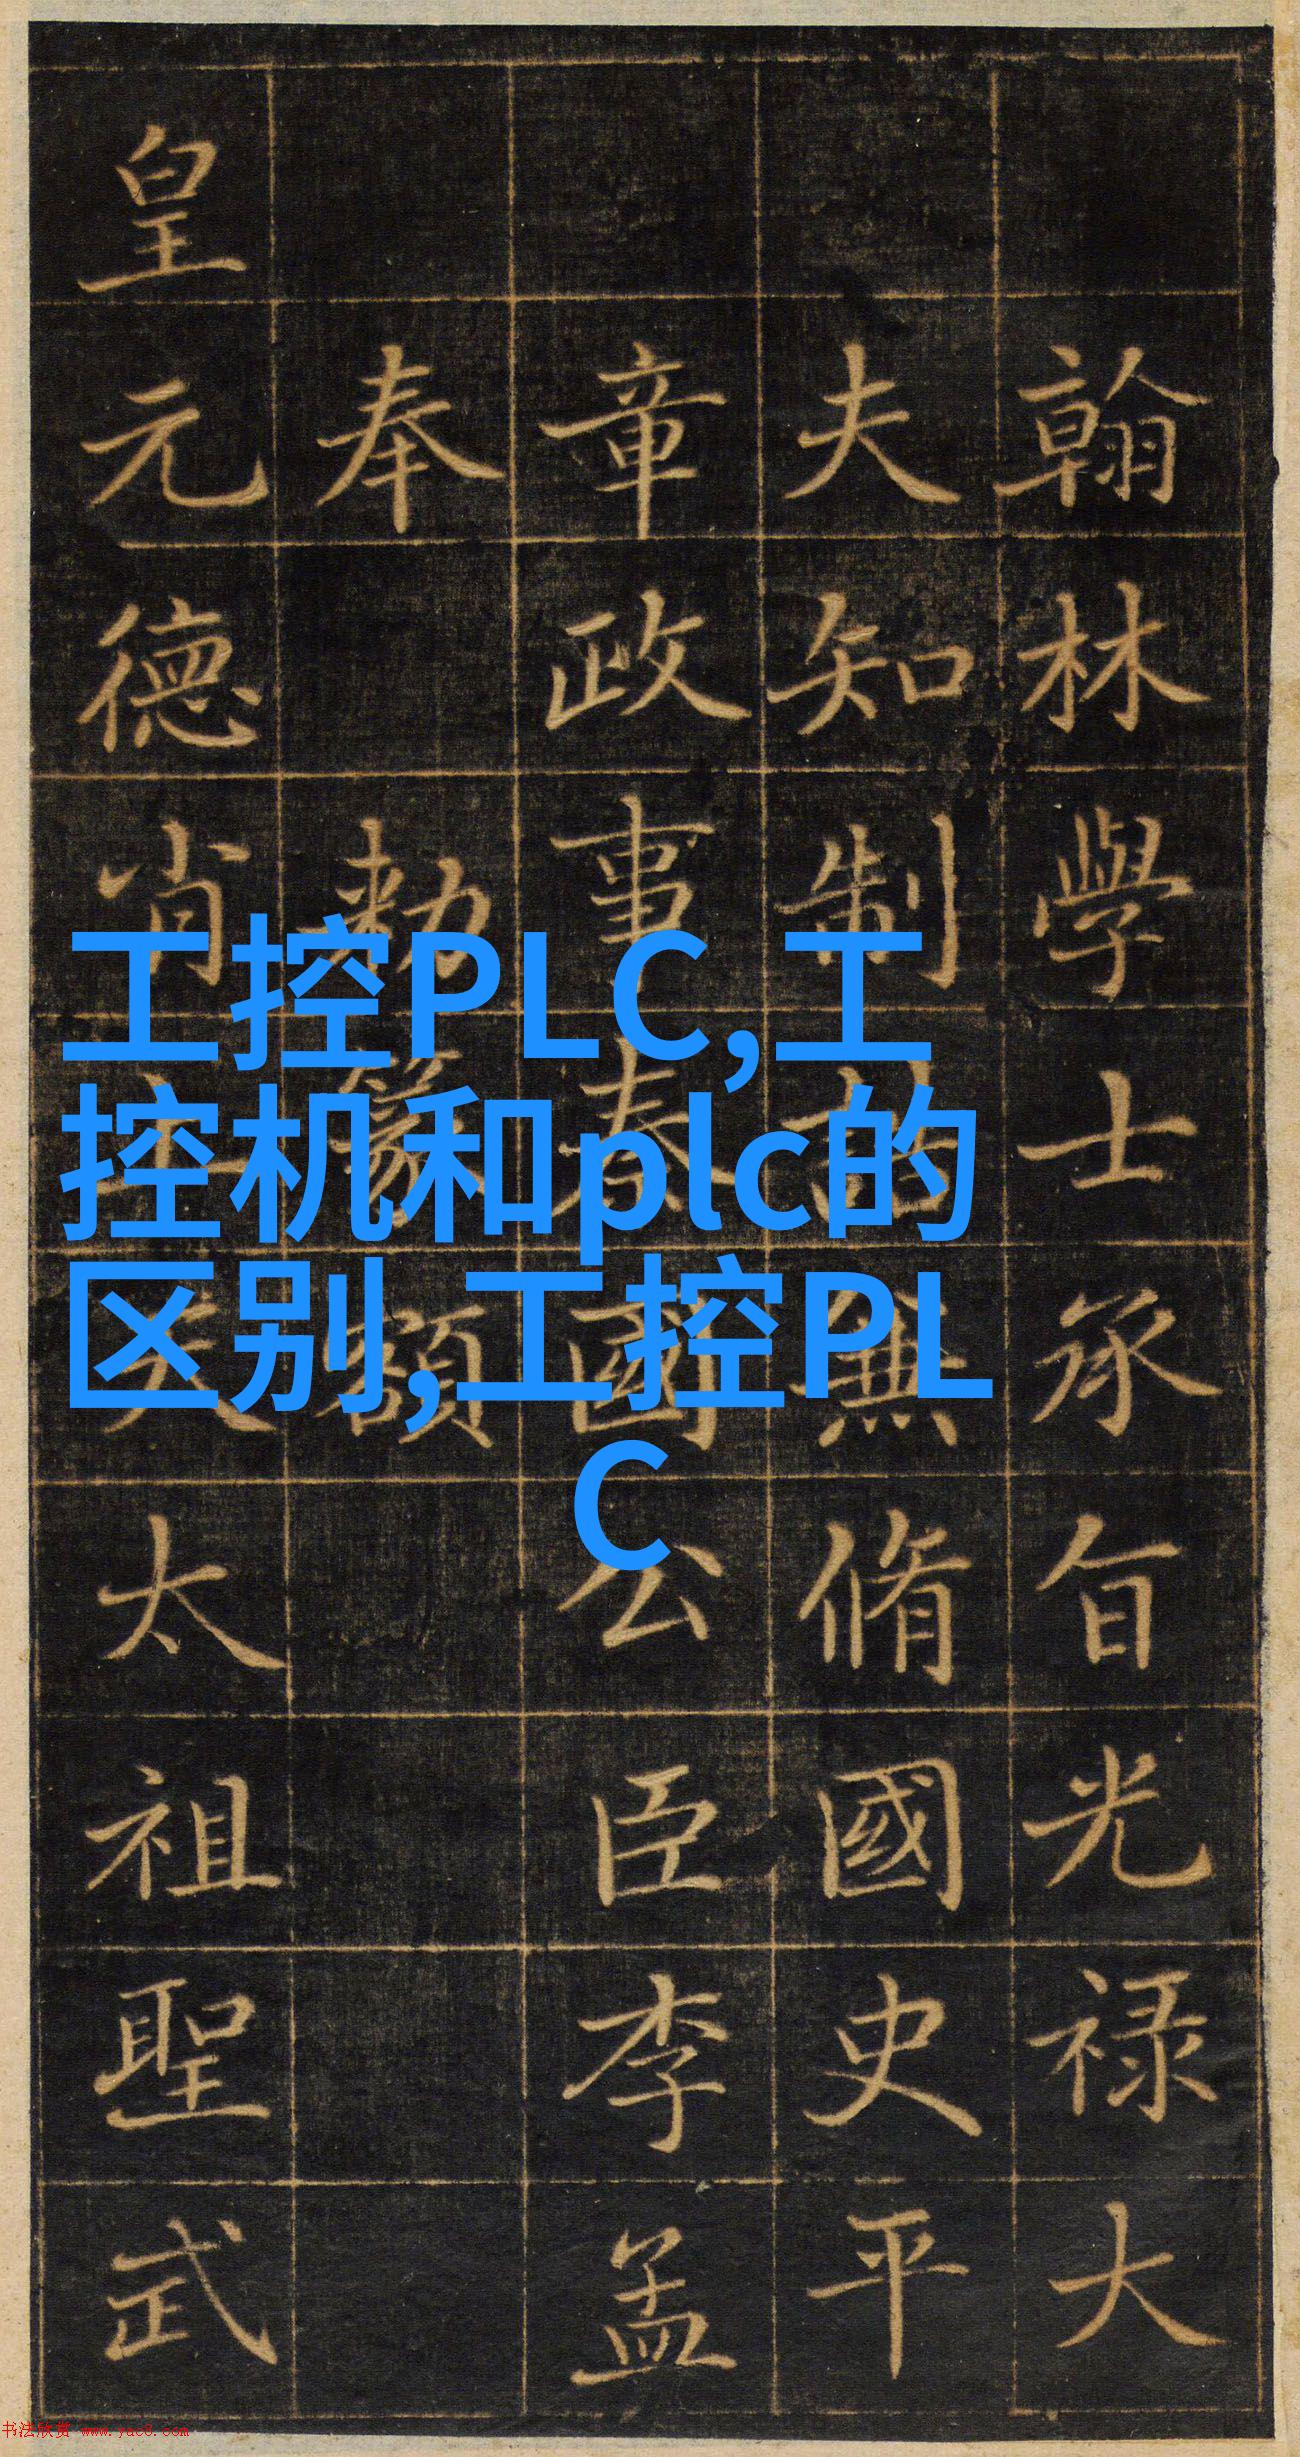 工控PLC,工
控机和plc的
区别,工控PL
C
翰林學士承旨光祿大
夫知制兼脩國史平
章政事國公臣李孟
奉勑篆額
皇元德肖太祖聖武
书法欣赏 www.yac8.com